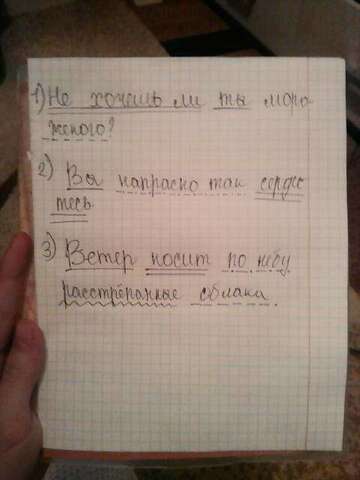 1) Не хочешь ли ты моро-
женого?
2) Вы напрасно так серди-
тесь
3) Ветер носит по небу
расстрёпанные облака.